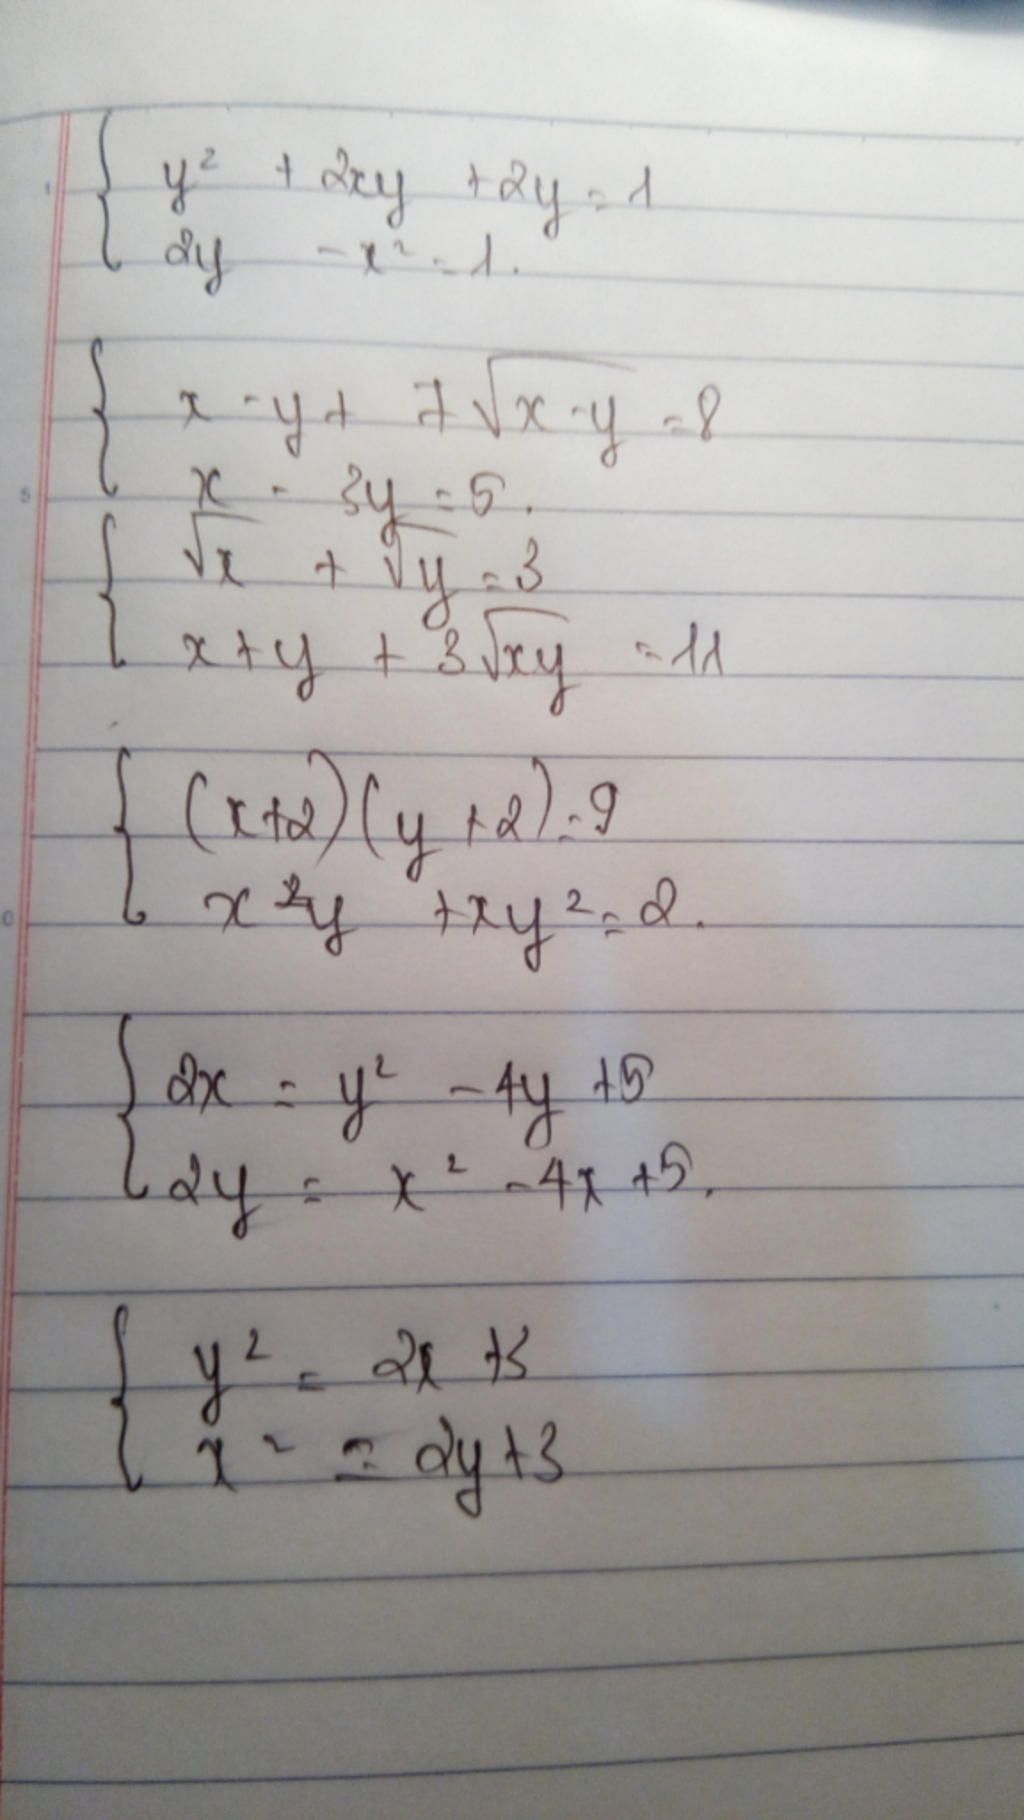 y² + 2xy + 2y = 1
2y - x² = 1.
x - y + 7√x - y = 8
x - 3y = 5.
√x + √y = 3
x + y + 3√xy = 11
(x+2)(y+2) = 9
x²y + xy² = 2.
2x = y² - 4y + 5
2y = x² - 4x + 5.
y² = 2x + 3
x² = 2y + 3